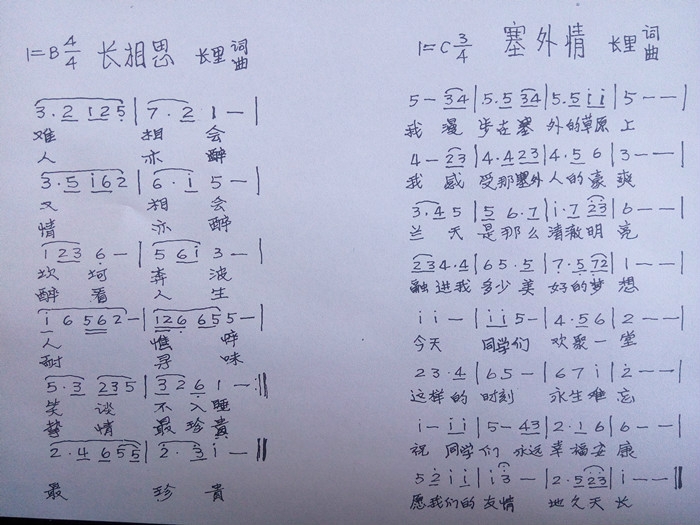 1=B 4/4 长相思 长里 词曲
3·2 1 2 5 | 7·2 1 — |
难 相 会
人 亦 醉
3·5 i 6 2 | 6·i 5 — |
又 相 会
情 亦 醉
1 2 3 6 — | 5 6 i 3 — |
坎 坷 奔 波
醉 看 人 生
i 6 5 6 2 — | 1 2 6 6 5 5 — |
人 憔 悴
耐 寻 味
5·3 2 3 5 | 3 2 6 1 — :||
笑 谈 不 入 睡
替 情 最 珍 贵
2·4 6 5 5 | 2·3 i — ||
最 珍 貴
1=C 3/4 塞外情 长里 词曲
5 — 3 4 | 5·5 3 4 | 5·5 i i | 5 — — |
我 漫 步在塞 外的草原 上
4 — 2 3 | 4·4 2 3 | 4·5 6 | 3 — — |
我 感 受那塞外 人的豪 爽
3·4 5 | 5 6·7 | i·7 2 3 | 6 — — |
兰 天 是那么 清澈明 亮
2 3 4·4 | 6 5·5 | 7·5 7 2 | 1 — — |
融 进我 多少美 好的梦 想
i i — | i i 5 — | 4·5 6 | 2 — — |
今天 同学们 欢聚一 堂
2 3·4 | 6 5 — | 6 7 i | 2 — — |
这样的 时刻 永生难 忘
i — i i | 5 — 4 3 | 2·1 6 | 2 — — |
祝 同学们 永远幸福安 康
5 2 i i | i 3 — | 2·5 2 3 | i — — ||
愿我们的 友情 地久天 长